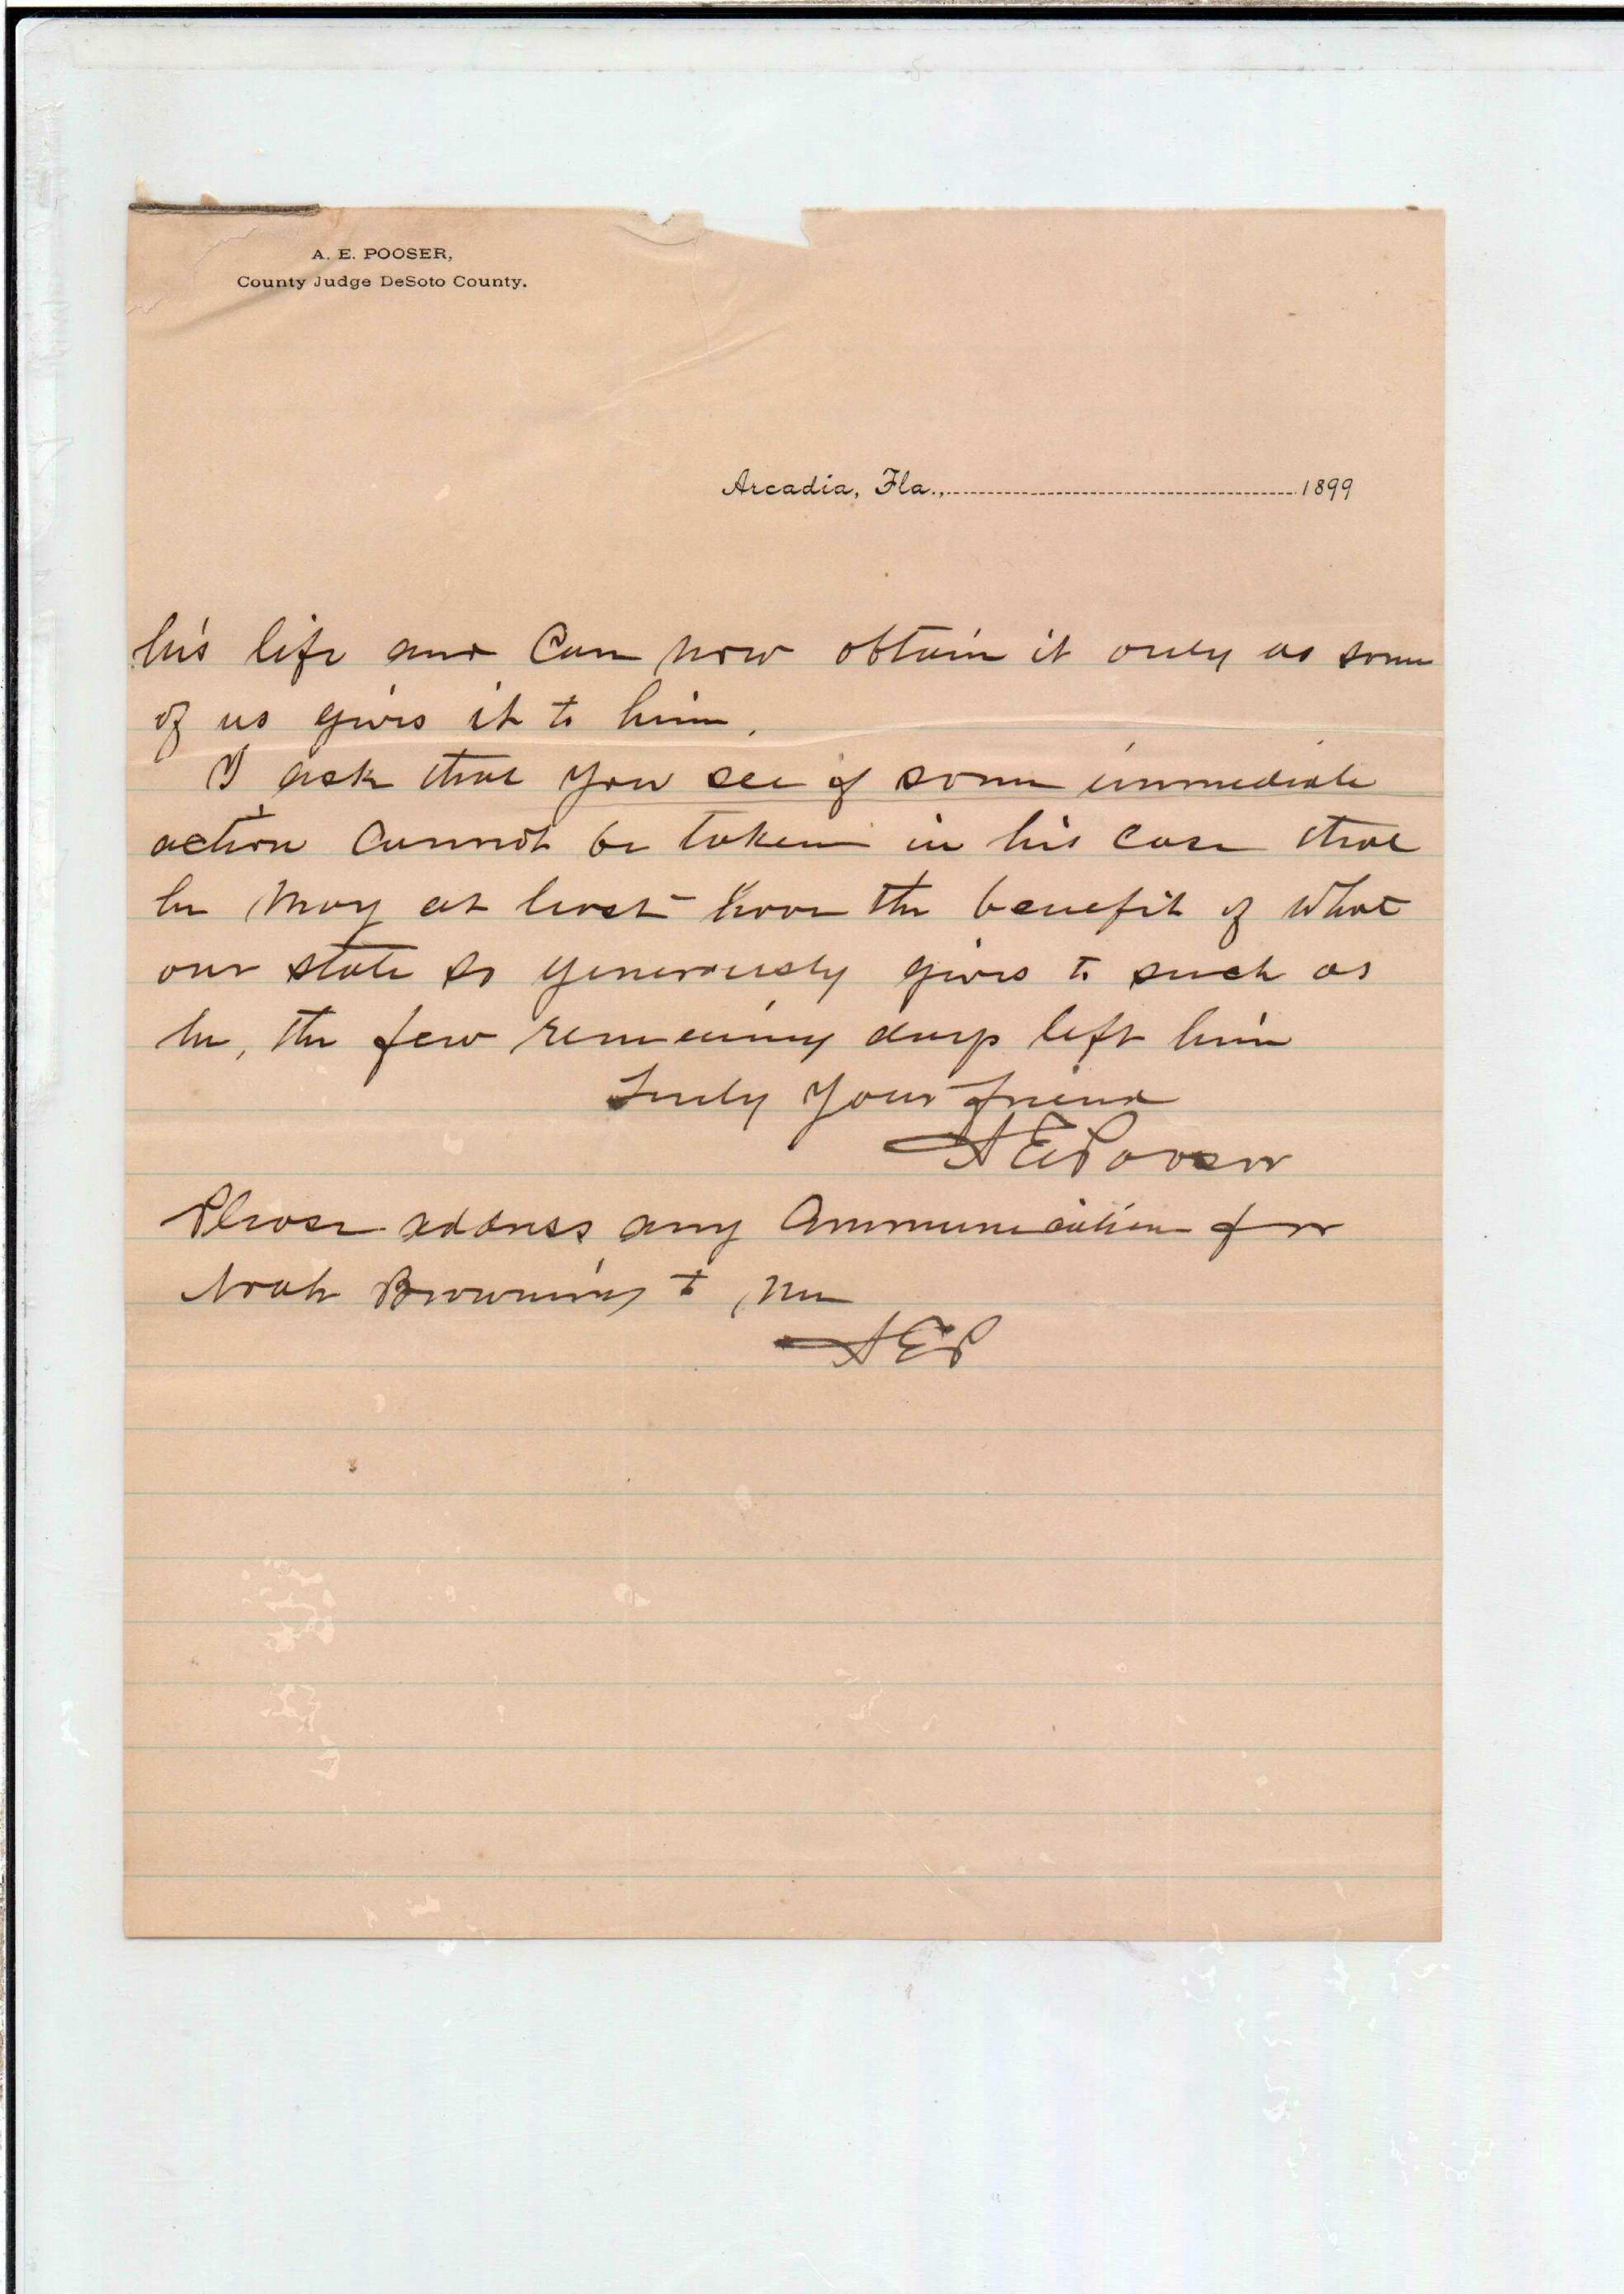 A. E. POOSER,
County Judge DeSoto County.
Arcadia, Fla., 1899
his life and can now obtain it only as some
of us gives it to him.
I ask that you see if some immediate
action cannot be taken in his case that
he may at least have the benefit of what
our state so generously gives to such as
he, the few remaining days left him
Truly your friend
A E Pooser
Please address any communication for
Noah Browning to me
AEP